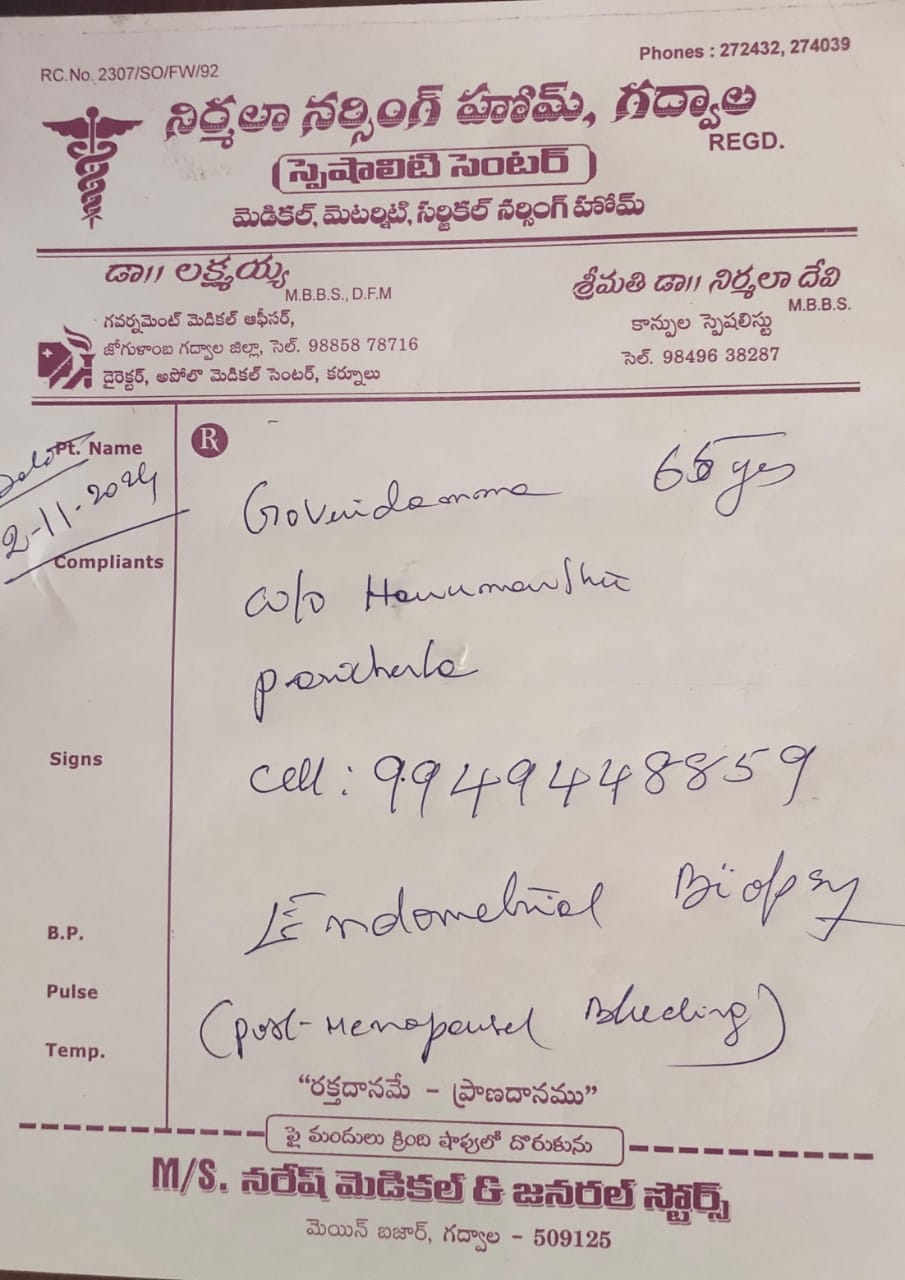 RC.No. 2307/SO/FW/92
Phones : 272432, 274039
నిర్మలా నర్సింగ్ హోమ్, గద్వాల
REGD.
స్పెషాలిటి సెంటర్
మెడికల్, మెటర్నిటి, సర్జికల్ నర్సింగ్ హోమ్
డా।। లక్ష్మయ్య
M.B.B.S., D.F.M
గవర్నమెంట్ మెడికల్ ఆఫీసర్,
జోగుళాంబ గద్వాల జిల్లా, సెల్. 98858 78716
డైరెక్టర్, అపోలొ మెడికల్ సెంటర్, కర్నూలు
శ్రీమతి డా।। నిర్మలా దేవి
M.B.B.S.
కాన్పుల స్పెషలిస్టు
సెల్. 98496 38287
Pt. Name
2-11-2024
Compliants
Signs
B.P.
Pulse
Temp.
Rx
Govindamma 65 yrs
w/o
Cell : 9949448859
Endometrial Biopsy
(Post-Menopausal Bleeding)
“రక్తదానమే - ప్రాణదానము”
పై మందులు క్రింది షాపులో దొరుకును
M/S. నరేష్ మెడికల్ & జనరల్ స్టోర్స్
మెయిన్ బజార్, గద్వాల - 509125